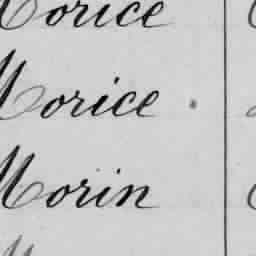 Morice
Morice
Morin